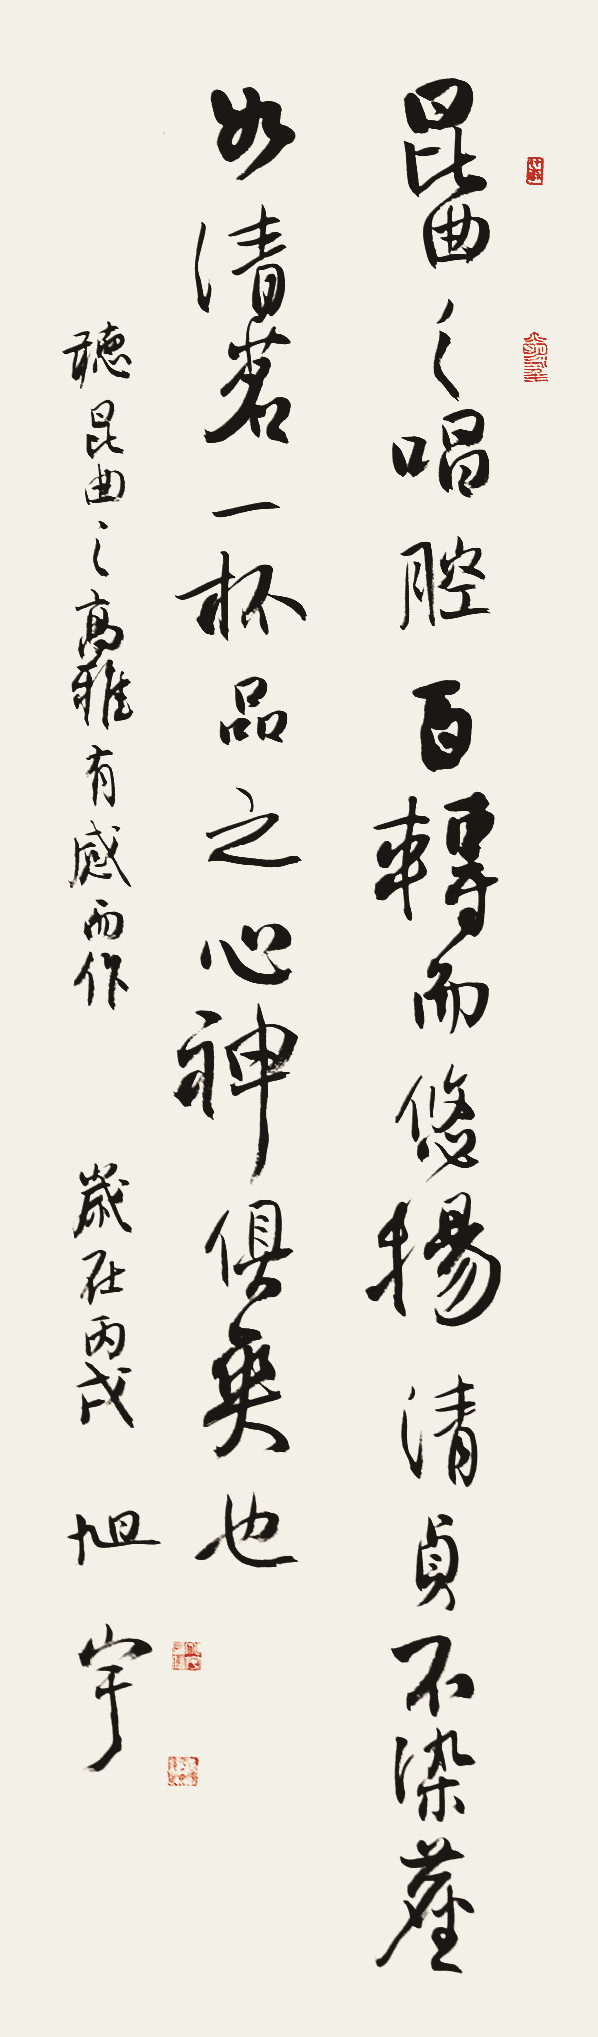 昆曲之唱腔百轉而悠揚清貞不染塵
如清茗一杯品之心神俱爽也
聽昆曲之高雅有感而作 歲在丙戌 旭宇